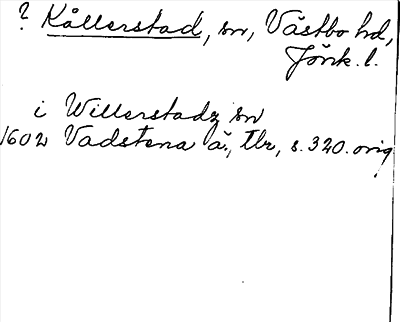 ? Kållerstad, sn, Västbo hd,
Jönk. l.
i Willerstadz sn
1602 Vadstena ä., tlr, s. 320. orig.